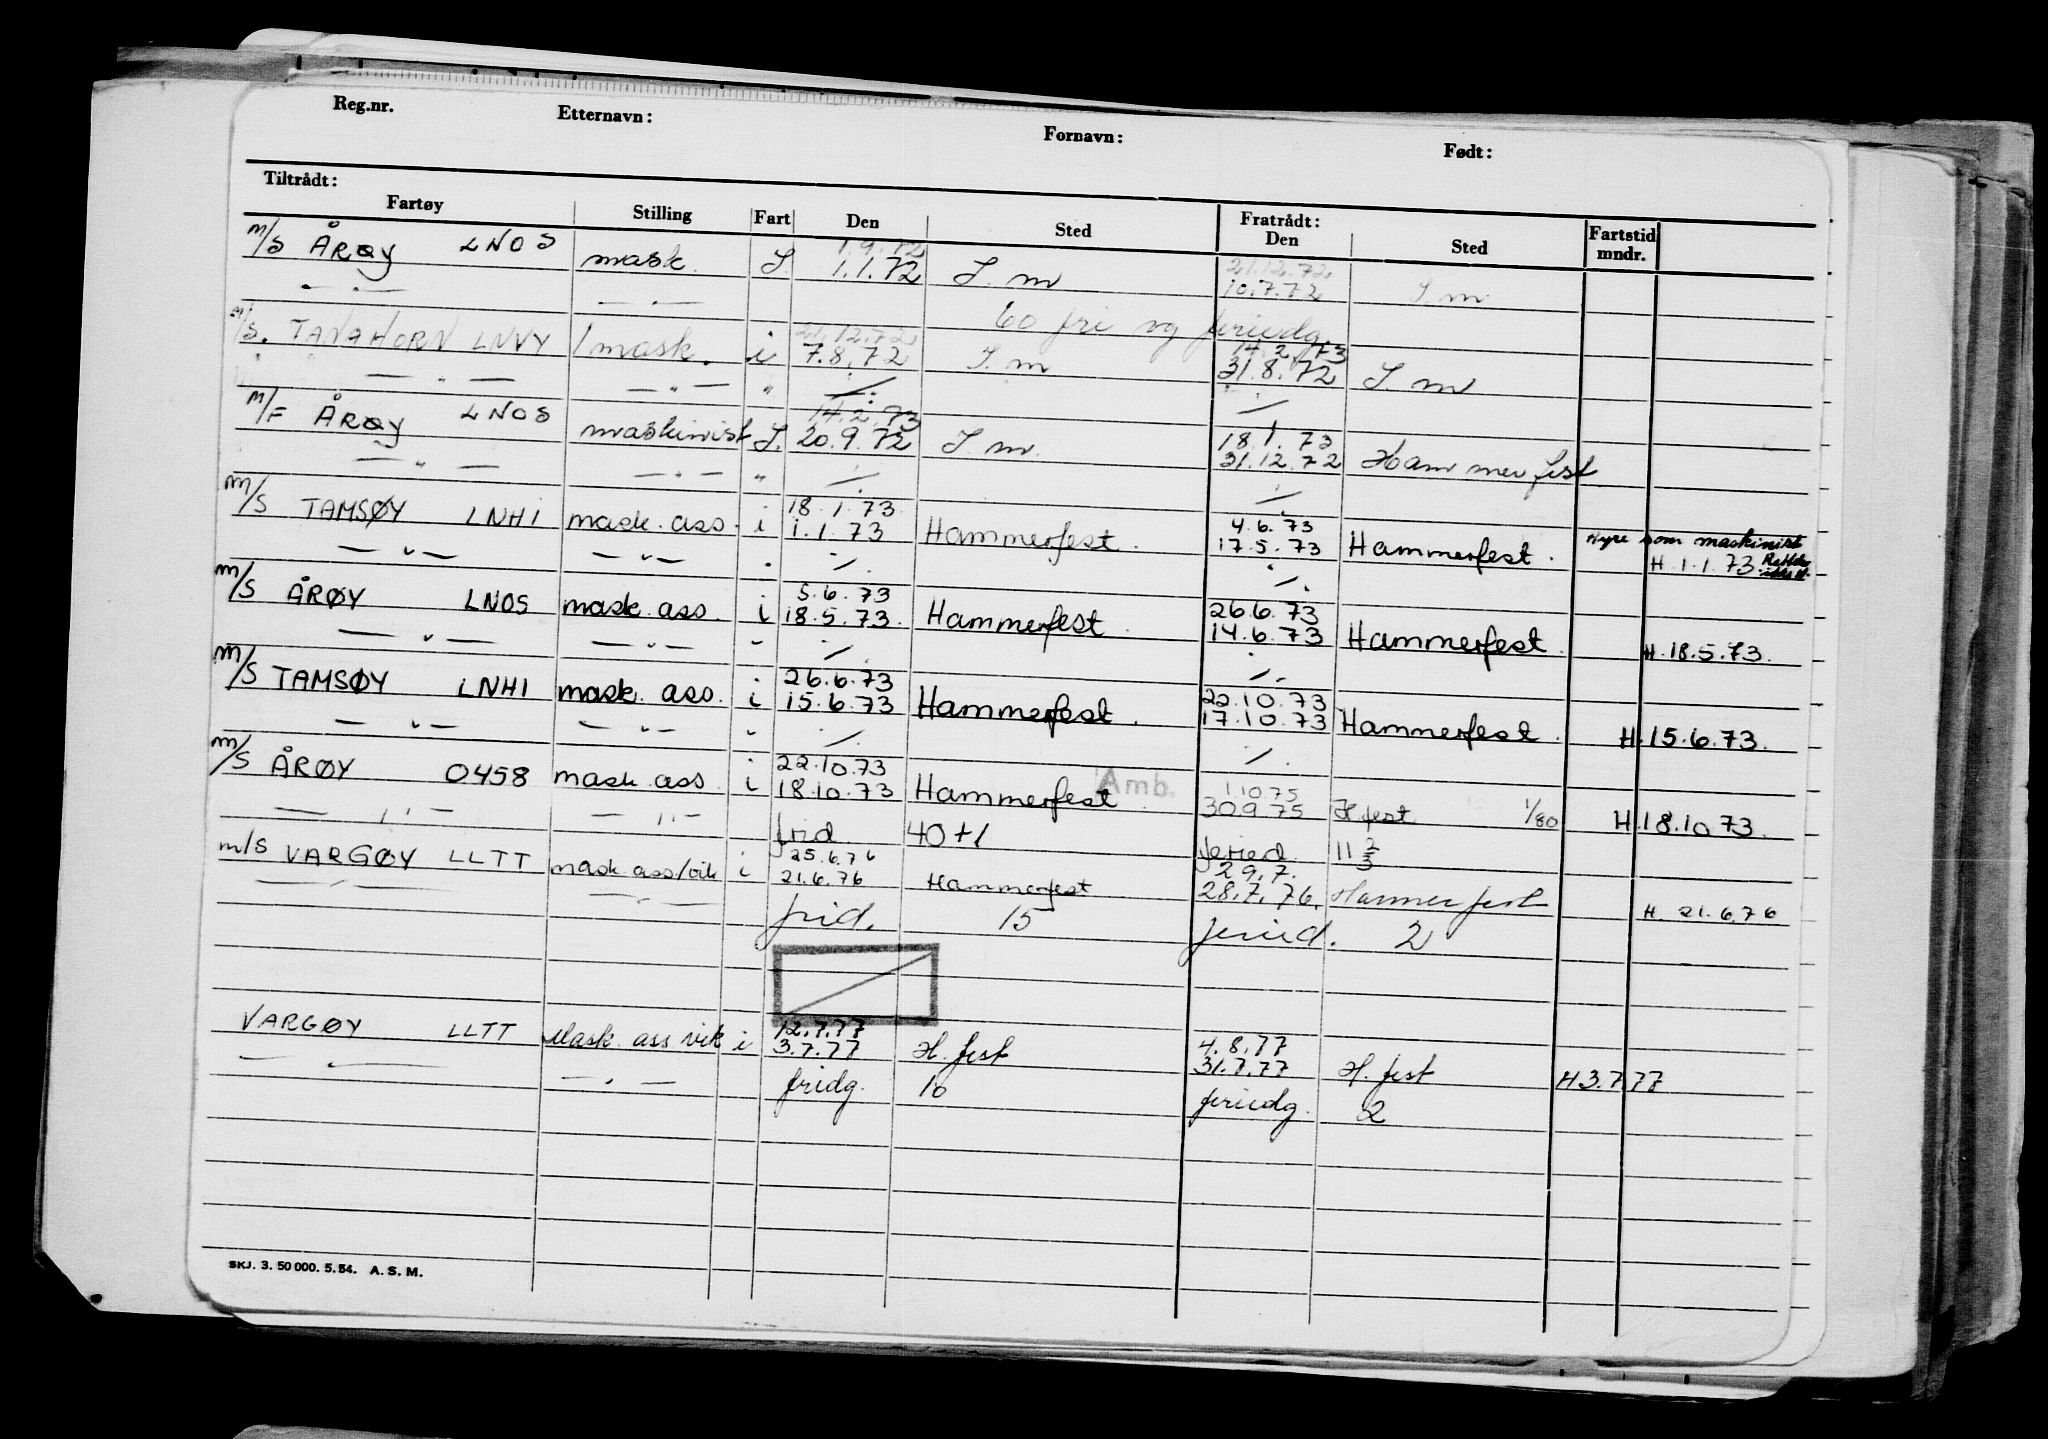 Reg.nr. Etternavn: Fornavn: Født:
Tiltrådt: Fratrådt:
Fartøy Stilling Fart Den Sted Den Sted Fartstid mndr.
1.9.72 21.12.72
m/s ÅRØY LNOS mask. S. 1.1.72 S.m 10.7.72 S.m
— " — — " — 60 fri og feriedg.
21.12.72 14.2.73
m/s. TANAHORN LNVY 1 mask. i 7.8.72 S.m 31.8.72 S.m
— " — — " — " ./. ./.
14.2.73 18.1.73
m/F ÅRØY LNOS maskinist S. 20.9.72 S.m. 31.12.72 Hammerfest
— " — — " — " ./. ./.
18.1.73 4.6.73 Hyre som maskinist
m/s TAMSØY LNHI mask. ass. i 1.1.73 Hammerfest. 17.5.73 Hammerfest. H.1.1.73.
— " — — " — ./. ./.
5.6.73 26.6.73
m/s ÅRØY LNOS mask. ass. i 18.5.73. Hammerfest. 14.6.73 Hammerfest. H.18.5.73.
— " — — " — " ./. ./.
26.6.73 22.10.73
m/s TAMSØY LNHI mask. ass. i 15.6.73 Hammerfest. 17.10.73 Hammerfest. H.15.6.73.
— " — — " — " ./. ./.
22.10.73 Amb. 1.10.75
m/s ÅRØY 0458 mask. ass. i 18.10.73 Hammerfest 30.9.75 H.fest 1/80 H.18.10.73.
— " — — " — frid. 40+1 feried. 11 2/3
25.6.76 29.7.
m/s VARGØY LLTT mask ass/vik i 21.6.76 Hammerfest 28.7.76. Hammerfest H. 21.6.76
— " — — " — frid. 15 feried. 2
12.7.77 4.8.77
VARGØY LLTT Mask. ass vik i 3.7.77 H. fest 31.7.77 H. fest H 3.7.77
— " — — " — fridg. 10 feriedg. 2
SKJ. 3. 50 000. 5.54. A. S. M.